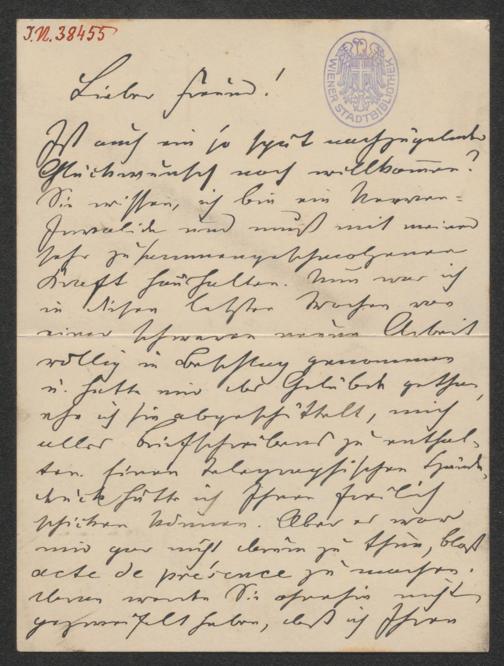 I.N. 38455
WIENER STADTBIBLIOTHEK
Lieber Freund!
Ist auch ein so spät nachzügelnder
Glückwunsch noch willkommen?
Sie wissen, ich bin ein Nerven-
Invalide und muß mit meiner
sehr zusammengeschmolzenen
Kraft haushalten. Nun war ich
in diesen letzten Wochen von
einer schweren neuen Arbeit
völlig in Beschlag genommen
u. hatte mir das Gelübde gethan,
ehe ich sie abgeschüttelt, mich
alles Briefschreibens zu enthal-
ten. Einen telegraphischen Hände-
druck hätte ich Ihnen freilich
schicken können. Aber es war
mir gar nicht darum zu thun, bloß
acte de présence zu machen.
Daran werden Sie ohnehin nicht
gezweifelt haben, daß ich Ihnen